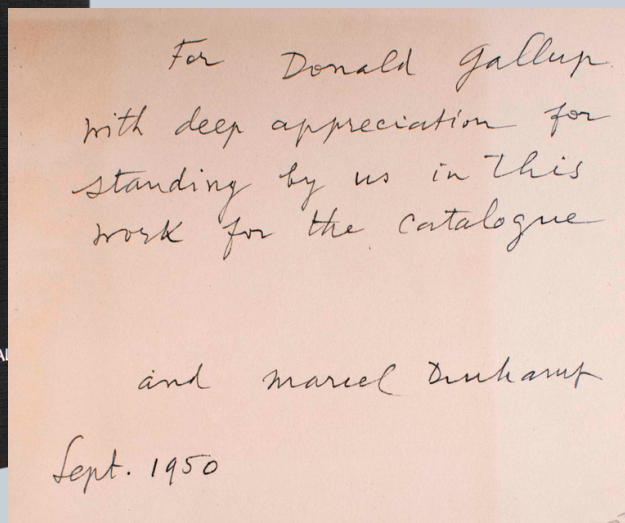 For Donald Gallup
with deep appreciation for
standing by us in this
work for the catalogue
and Marcel Duchamp
Sept. 1950